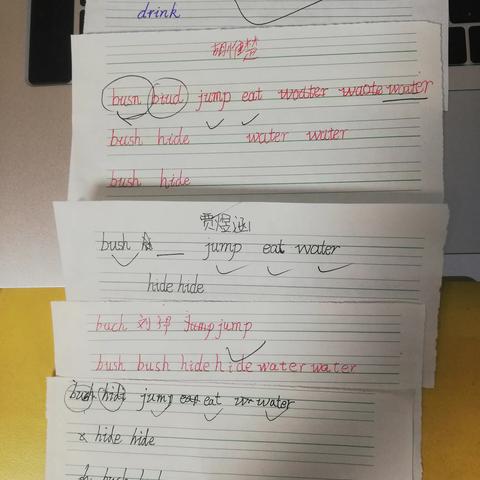 drink
busn biud jump eat woater waote water
bush hide water water
bush hide
贾煜涵
bush jump eat water
hide hide
buch jump jump
bush bush hide hide water water
bush hidi jump eat eat water
hide hide
bush